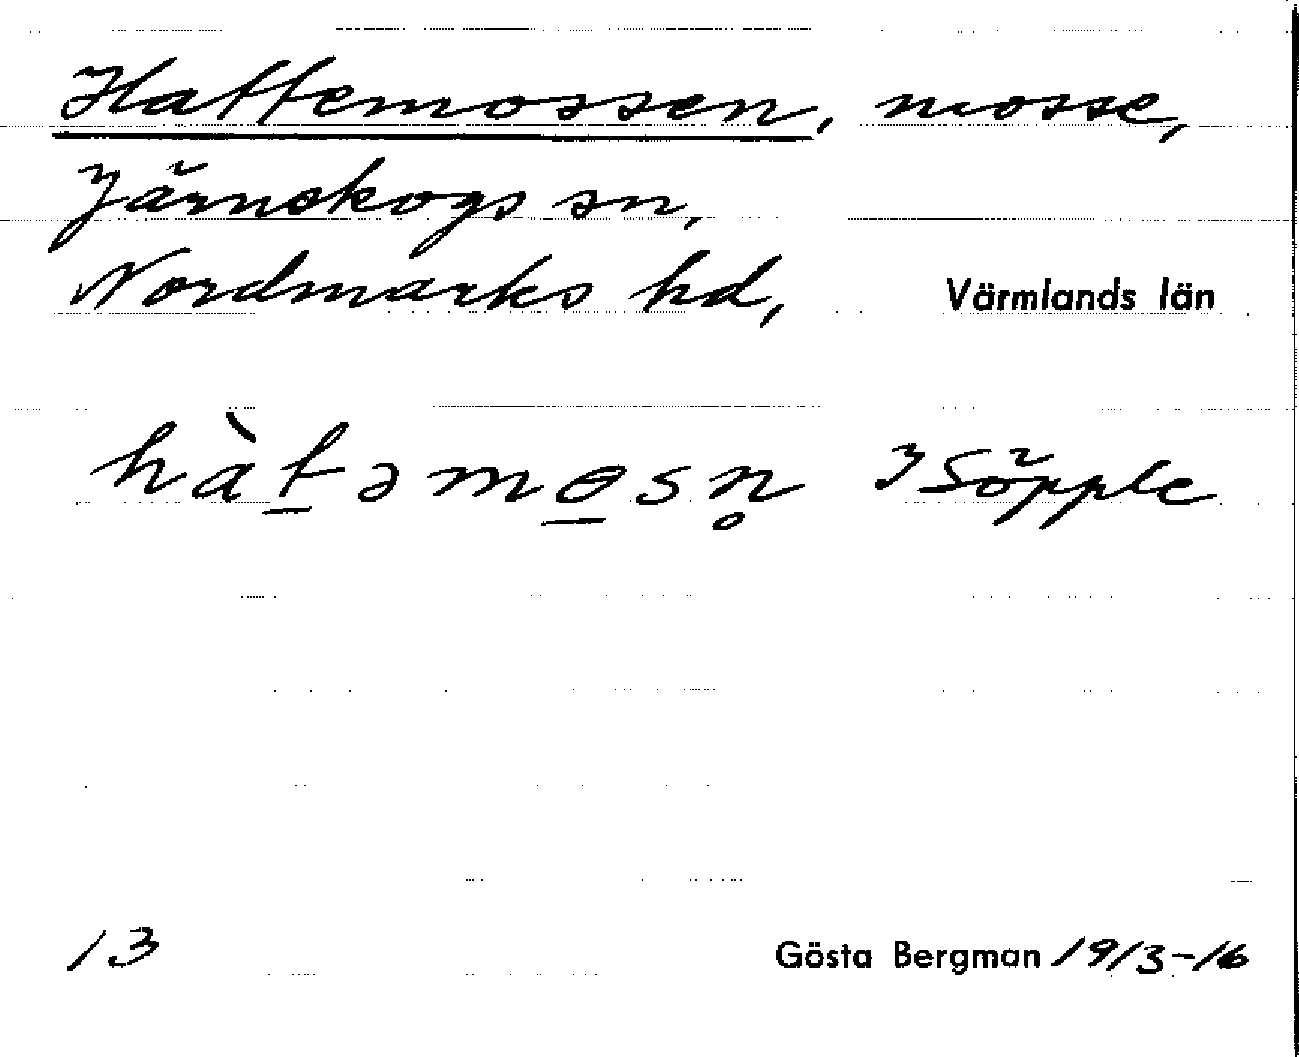 Hattemossen, mosse,
Järnskogs sn,
Nordmarks hd, Värmlands län
hàt̠əmo̠sn̥ 3 Söpple
13 Gösta Bergman 1913-16